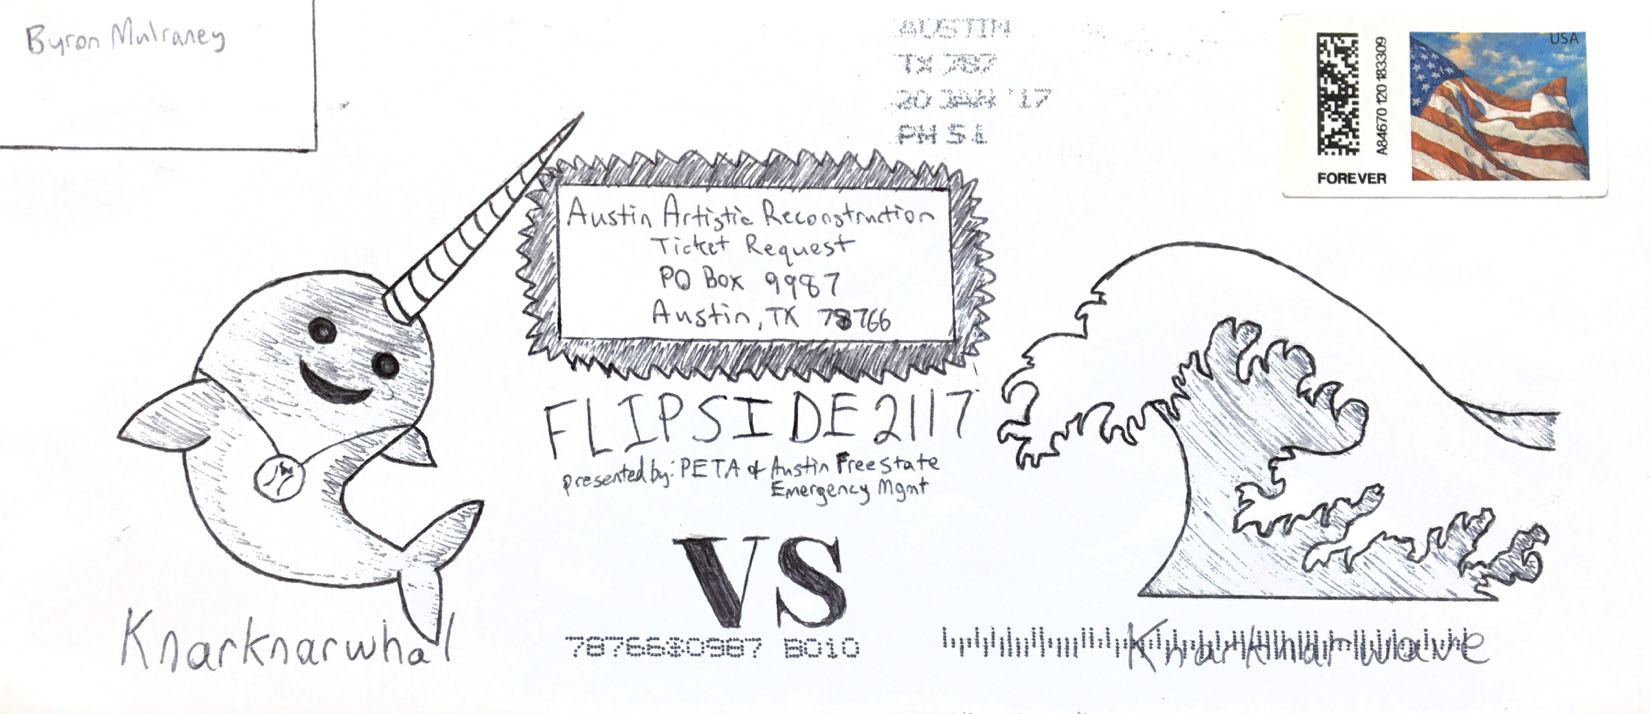 Byron Mulraney
AUSTIN
TX 787
20 JAN '17
PM 5 L
USA
A84670 120 183309
FOREVER
Austin Artistic Reconstruction
Ticket Request
PO Box 9987
Austin, TX 78766
FLIPSIDE 2117
presented by: PETA & Austin Free State
Emergency Mgmt
VS
Knarknarwhal
78766$0987 B010
Knarknarwave